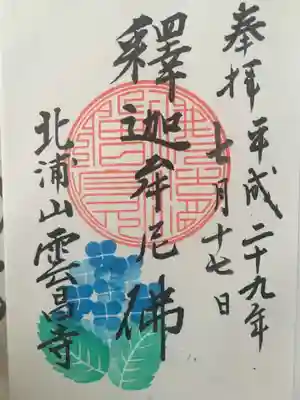 奉拝 平成二十九年
七月十七日
釋迦牟尼佛
北浦山 雲昌寺